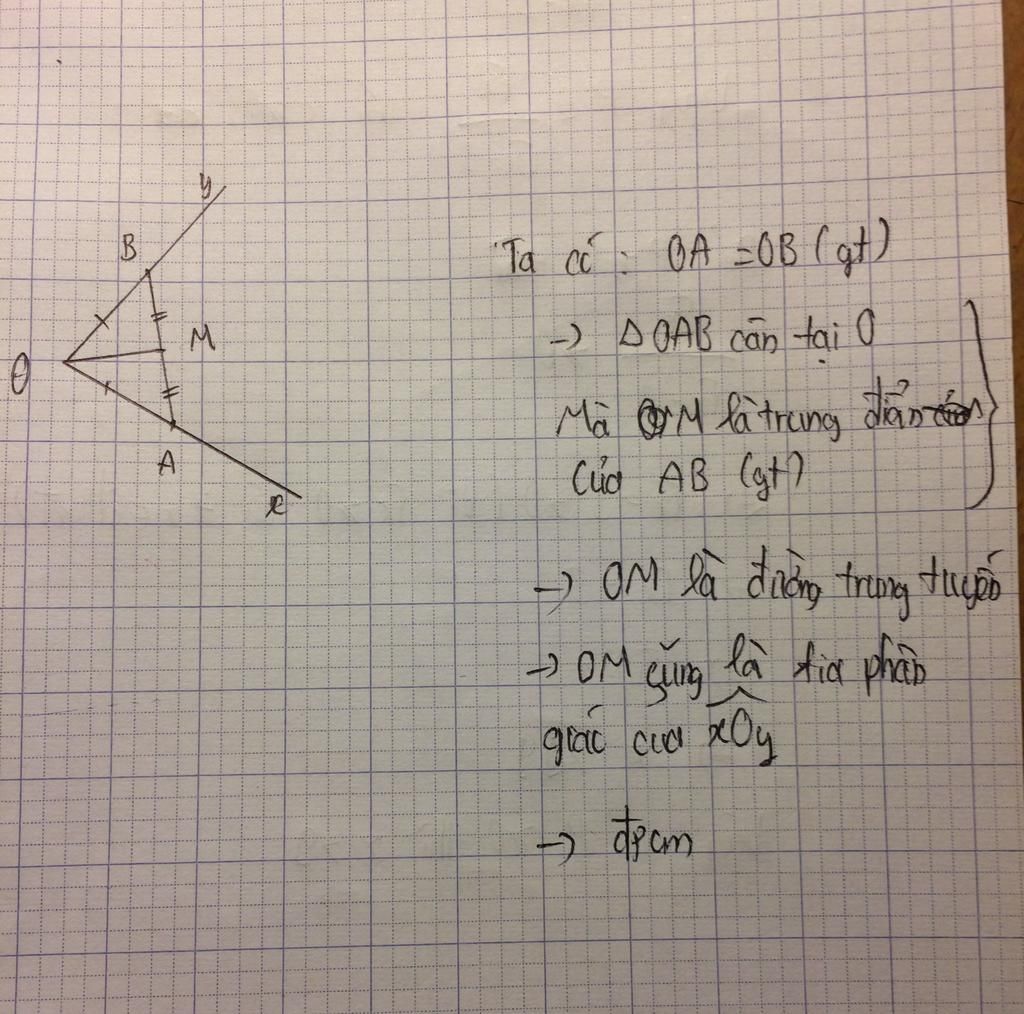 y
B
M
O
A
x
Ta có: OA = OB (gt)
→ Δ OAB cân tại O
Mà M là trung điểm
của AB (gt)
→ OM là đường trung tuyến
→ OM cũng là tia phân
giác của xOy
→ đpcm